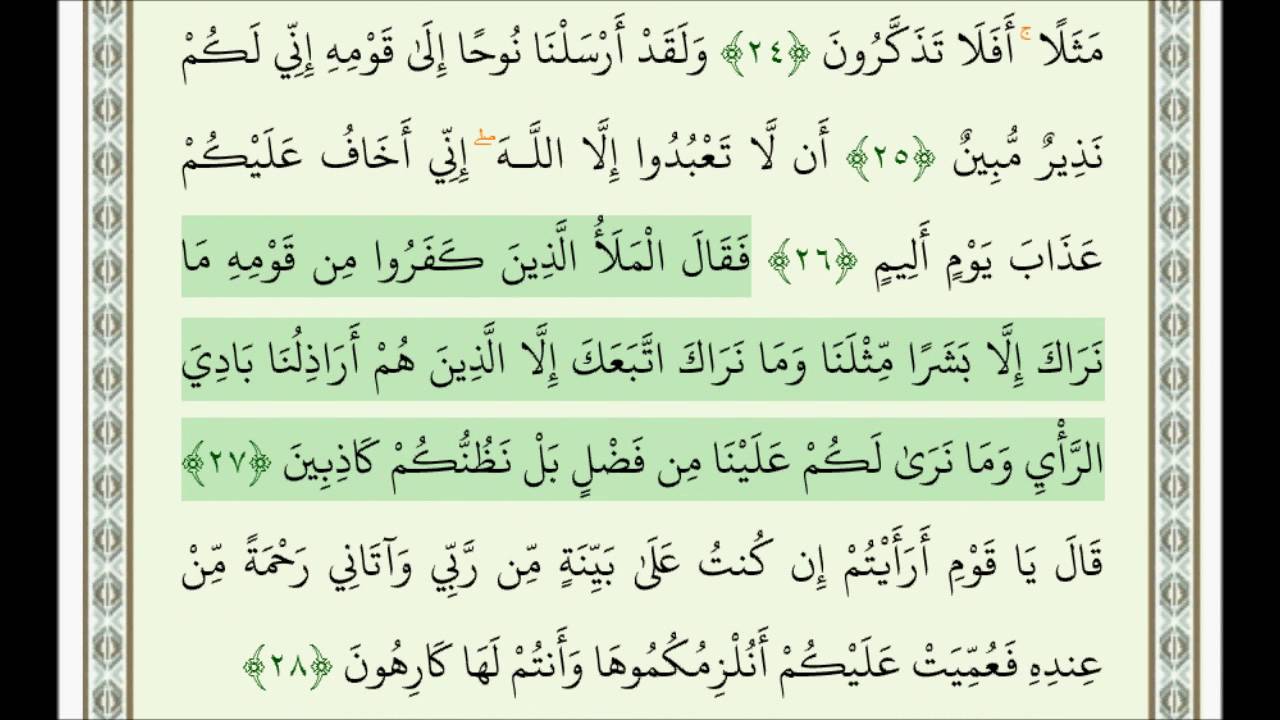 مَثَلًا ۚ أَفَلَا تَذَكَّرُونَ ﴿٢٤﴾ وَلَقَدْ أَرْسَلْنَا نُوحًا إِلَىٰ قَوْمِهِ إِنِّي لَكُمْ
نَذِيرٌ مُّبِينٌ ﴿٢٥﴾ أَن لَّا تَعْبُدُوا إِلَّا اللَّـهَ ۖ إِنِّي أَخَافُ عَلَيْكُمْ
عَذَابَ يَوْمٍ أَلِيمٍ ﴿٢٦﴾ فَقَالَ الْمَلَأُ الَّذِينَ كَفَرُوا مِن قَوْمِهِ مَا
نَرَاكَ إِلَّا بَشَرًا مِّثْلَنَا وَمَا نَرَاكَ اتَّبَعَكَ إِلَّا الَّذِينَ هُمْ أَرَاذِلُنَا بَادِيَ
الرَّأْيِ وَمَا نَرَىٰ لَكُمْ عَلَيْنَا مِن فَضْلٍ بَلْ نَظُنُّكُمْ كَاذِبِينَ ﴿٢٧﴾
قَالَ يَا قَوْمِ أَرَأَيْتُمْ إِن كُنتُ عَلَىٰ بَيِّنَةٍ مِّن رَّبِّي وَآتَانِي رَحْمَةً مِّنْ
عِندِهِ فَعُمِّيَتْ عَلَيْكُمْ أَنُلْزِمُكُمُوهَا وَأَنتُمْ لَهَا كَارِهُونَ ﴿٢٨﴾